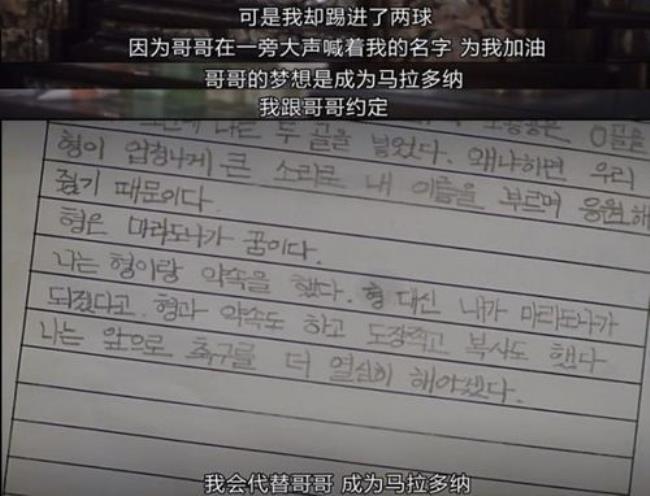 可是我却踢进了两球
因为哥哥在一旁大声喊着我的名字 为我加油
哥哥的梦想是成为马拉多纳
我跟哥哥约定
나는 두 골을 넣었다. 왜냐하면 우리
형이 엄청나게 큰 소리로 내 이름을 부르며 응원해
줬기 때문이다.
형은 마라도나가 꿈이다.
나는 형이랑 약속을 했다. 형 대신 내가 마라도나가
되겠다고. 형과 약속도 하고 도장찍고 복사도 했다
나는 앞으로 축구를 더 열심히 해야겠다.
我会代替哥哥 成为马拉多纳